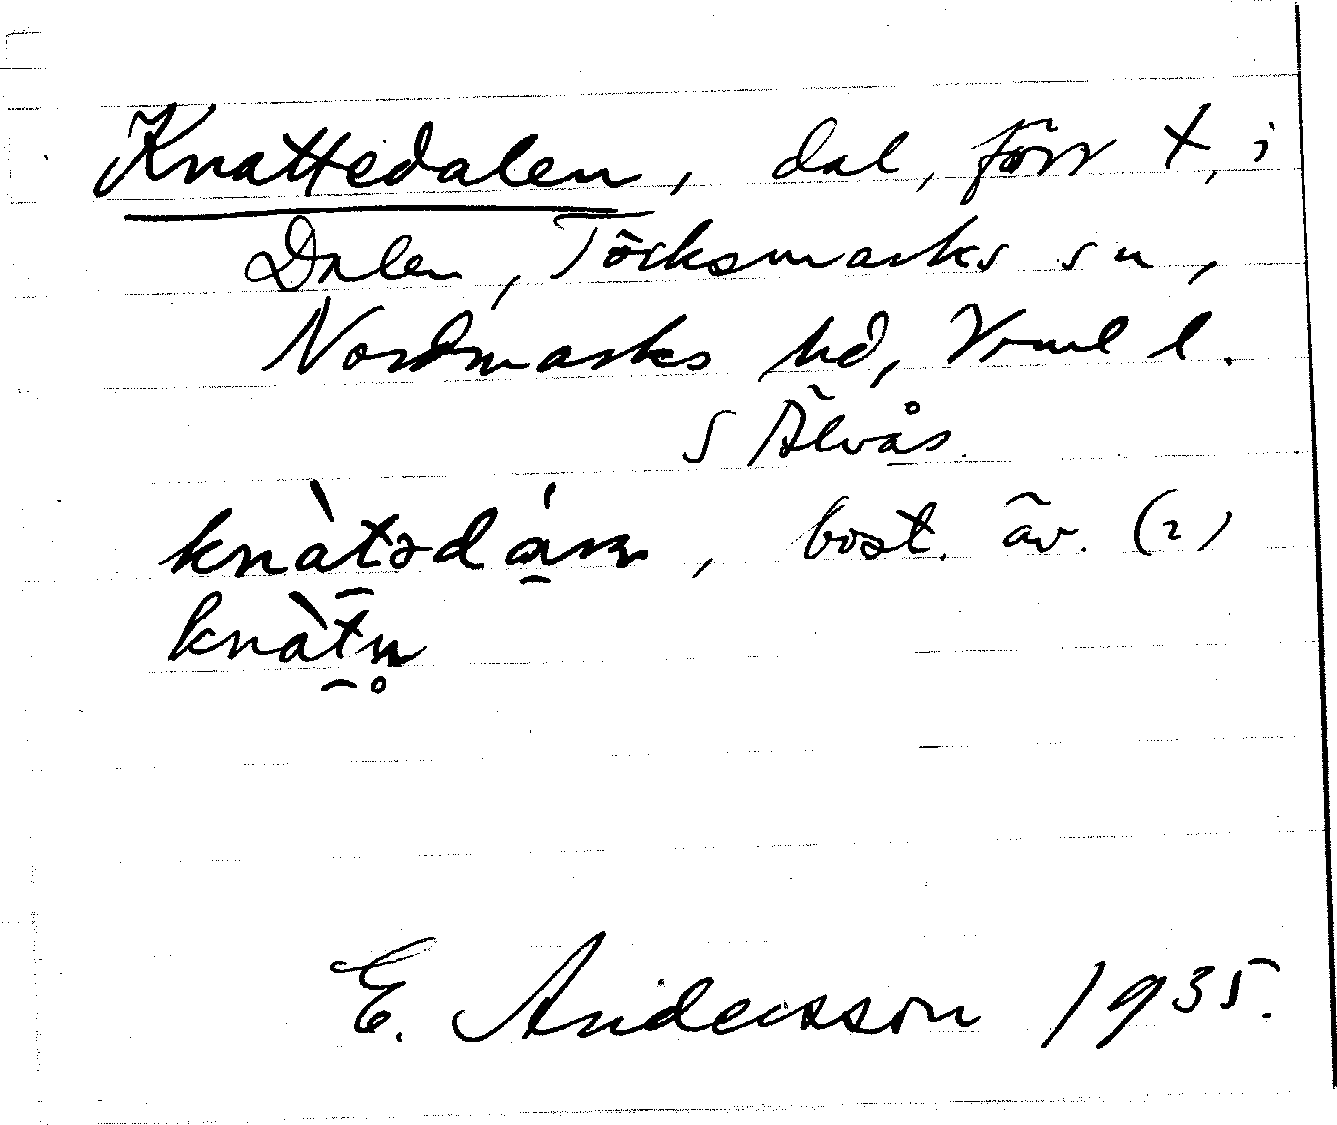 Knattedalen, dal, förr t, i
Dalen, Töcksmarks sn,
Nordmarks hd, Vrml l.
S Älvås.
knàtədán, bost. äv. (2)
knàtn̥
E. Andersson 1935.